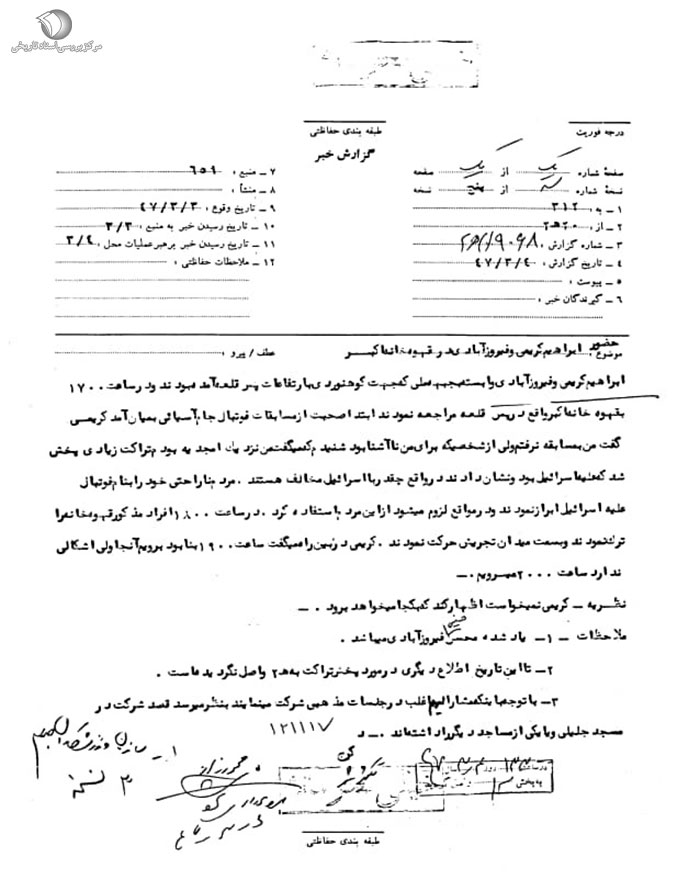 مرکز بررسی اسناد تاریخی
طبقه بندی حفاظتی
درجه فوریت
گزارش خبر
صفحهٔ شماره یک از یک صفحه
نسخهٔ شماره سه از پنج نسخه
۱ ـ به : ۳۱۲
۲ ـ از : ۲۰ ه‍ ۲
۳ ـ شماره گزارش :
۴ ـ تاریخ گزارش : ۴۷/۳/۴
۵ ـ پیوست :
۶ ـ گیرندگان خبر :
۷ ـ منبع : ۶۵۹
۸ ـ منشأ :
۹ ـ تاریخ وقوع : ۴۷/۳/۳
۱۰ ـ تاریخ رسیدن خبر به منبع : ۳/۳
۱۱ ـ تاریخ رسیدن خبر برهبر عملیات محل : ۳/۴
۱۲ ـ ملاحظات حفاظتی :
موضوع : حضور ابراهیم کریمی و فیروزآبادی در قهوه خانه اکبر
عطف / پیرو :
ابراهیم کریمی و فیروزآبادی وابسته جبهه ملی که جهت کوهنوردی بارتفاعات پس قلعه آمده بودند و در ساعت ۱۷۰۰
بقهوه خانه اکبر واقع در پس قلعه مراجعه نمودند ابتدا صحبت از مسابقات فوتبال جام آسیائی بمیان آمد کریمی
گفت من بمسابقه نرفتم ولی از شخصیکه برای من ناآشنا بود شنیدم که میگفت من نزدیک امجدیه بودم تراکت زیادی پخش
شد که علیه اسرائیل بود و نشان دادند در واقع چقدر با اسرائیل مخالف هستند . مردم ناراحتی خود را بنام فوتبال
علیه اسرائیل ابراز نمودند و در مواقع لزوم میشود از این مردم استفاده کرد . در ساعت ۱۸۰۰ افراد مذکور قهوه خانه را
ترک نمودند و بسمت میدان تجریش حرکت نمودند . کریمی در بین راه میگفت ساعت ۱۹۰۰ بنا بود برویم آنجا ولی اشکالی
ندارد ساعت ۲۰۰۰ میرویم . ـ
نظریه ـ کریمی نمیخواست اظهار کند که بکجا میخواهد برود . ـ
ملاحظات ـ ۱ـ یاد شده محسن فیروزآبادی میباشد .
۲ـ تا این تاریخ اطلاع دیگری در مورد پخش تراکت به ه‍ ۲ واصل نگردیده است .
۳ ـ با توجه باینکه مشارالیهم اغلب در جلسات مذهبی شرکت مینمایند بنظر میرسد قصد شرکت در
مسجد جلیلی و یا یکی از مساجد دیگر را داشته اند . ـ د
۱۲۱۱۱۷
۳ نسخه
طبقه بندی حفاظتی